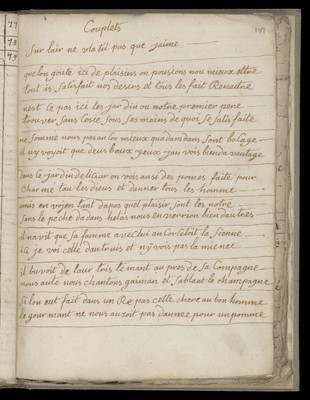 Couplets
Sur lair ne vla til pus que jaime
que lon goute ici de plaisirs ou pourions nou mieux etre
tout is satisfait nos desirs et tous les fait Renaitre
nest ce pas ici les jardin ou notre premier pere
trouver sans cesse sous ses mains de quoi se satisfaite
ne somme nous pas au lor mieux quadam dans sont bocage
il ny voyoit que deux beaux yeux jan vois bienda vantage
dans le jardin delicieux on vois ausi des pomes faite pour
charmer tau les dieux et danner tous les homme
mais en voyen tant dapas quel plaisir sont les notre
sans le peche dadam helas nous en verion bien dautres
il navit que sa famme avec lui an cor cetoit la sienne
ici je voi celle dautruis et ny vois pas la mienne
il buvoit de laur tois le mant au pres de sa Compagne
nous autre nous chantons gaiman et sablant le champagne
si lon eut fait dans un Re pas cette chere au bon homme
le gourmant ne nous auroit pas dannee pour un pomme